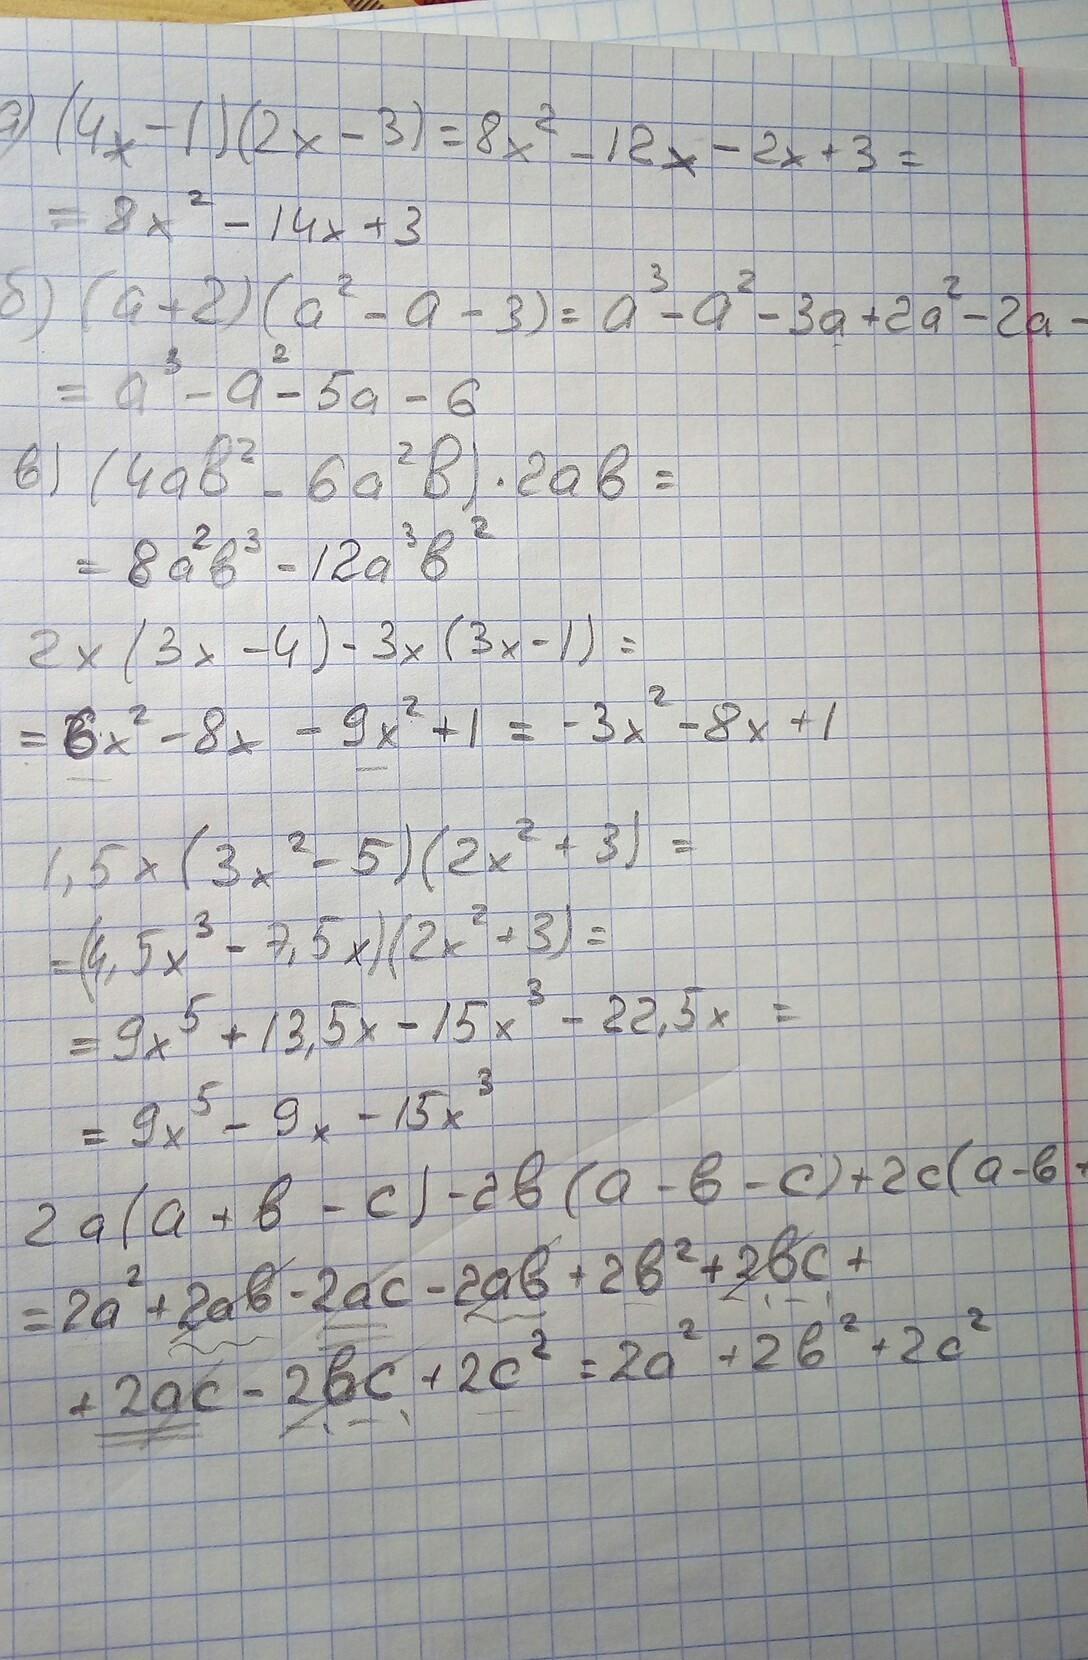 а) (4x-1)(2x-3)=8x²-12x-2x+3=
=8x²-14x+3
б) (a+2)(a²-a-3)=a³-a²-3a+2a²-2a-
=a³-a²-5a-6
в) (4ab²-6a²b)·2ab=
=8a²b³-12a³b²
2x(3x-4)-3x(3x-1)=
=6x²-8x-9x²+1=-3x²-8x+1
1,5x(3x²-5)(2x²+3)=
=(4,5x³-7,5x)(2x²+3)=
=9x⁵+13,5x-15x³-22,5x=
=9x⁵-9x-15x³
2a(a+b-c)-2b(a-b-c)+2c(a-b+
=2a²+2ab-2ac-2ab+2b²+2bc+
+2ac-2bc+2c²=2a²+2b²+2c²